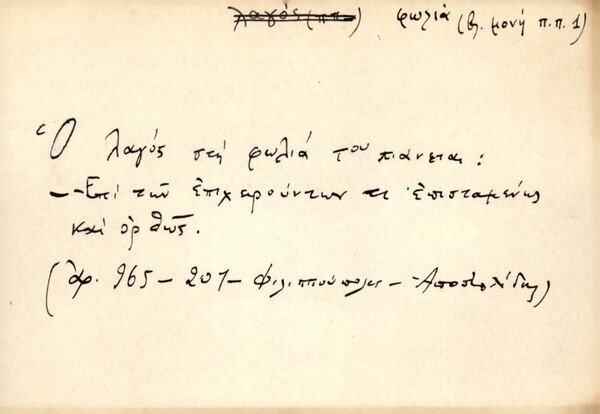 λαγός (π.π.) φωλιά (βλ. μονή π.π. 1)
Ὁ λαγός στή φωλιά του πιάνεται :
– Ἐπί τῶν ἐπιχειρούντων τι ἐπισταμένως
καί ὀρθῶς.
(λφ. 965 – 207 – Φιλιππούπολις – Ἀποστολίδης)